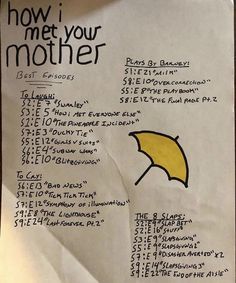 how i
met your
mother
Best Episodes
To Laugh:
S2:E7 "Swarley"
S3:E5 "How I met everyone else"
S1:E10 "The Pineapple Incident"
S7:E3 "Ducky Tie"
S5:E12 "Girls v Suits"
S6:E4 "Subway Wars"
S6:E10 "Blitzgiving"
To Cry:
S6:E13 "Bad News"
S7:E10 "Tick Tick Tick"
S7:E12 "Symphony of Illumination"
S9:E8 "The Lighthouse"
S9:E24 "Last Forever Pt.2"
Plays By Barney:
S1:E21 "Milk"
S8:E10 "Overcorrection"
S5:E8 "The Playbook"
S8:E12 "The Final Page Pt.2"
The 8 Slaps:
S2:E9 "Slap Bet"
S2:E16 "Stuff"
S3:E9 "Slapsgiving"
S5:E9 "Slapsgiving2"
S7:E9 "Disaster Averted" x2
S9:E14 "Slapsgiving3"
S9:E22 "The End of the Aisle"